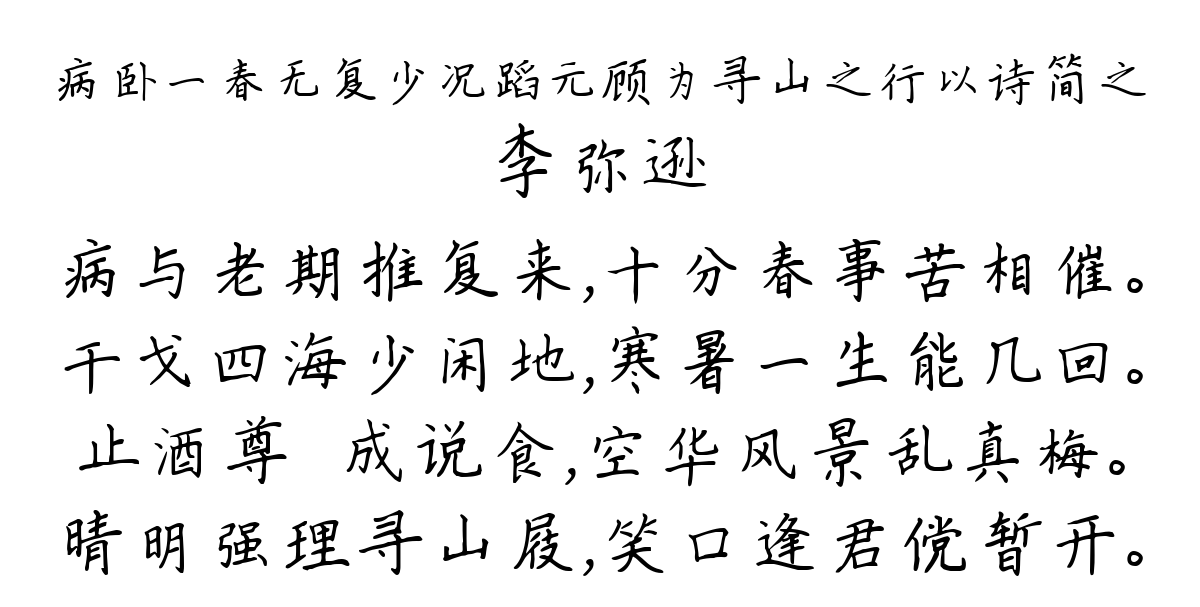 病卧一春无复少况蹈元顾为寻山之行以诗简之
李弥逊
病与老期推复来,十分春事苦相催。
干戈四海少闲地,寒暑一生能几回。
止酒尊 成说食,空华风景乱真梅。
晴明强理寻山屐,笑口逢君傥暂开。